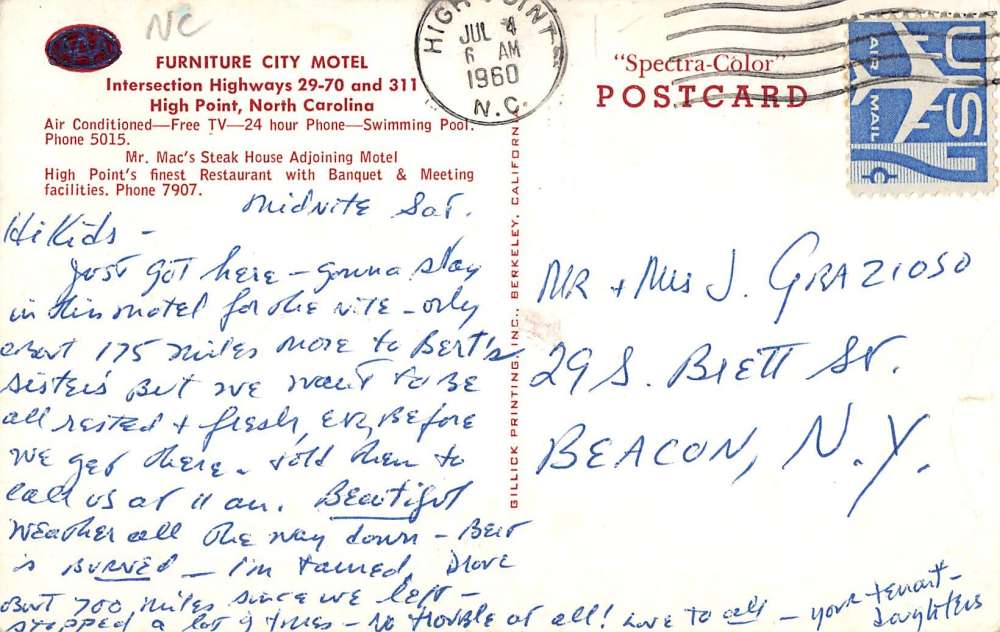 NC
FURNITURE CITY MOTEL
Intersection Highways 29-70 and 311
High Point, North Carolina
Air Conditioned—Free TV—24 hour Phone—Swimming Pool.
Phone 5015.
Mr. Mac's Steak House Adjoining Motel
High Point's finest Restaurant with Banquet & Meeting
facilities. Phone 7907.
midnite Sat.
Hi Kids -
Just got here - gonna stay
in this motel for the nite - only
about 175 miles more to Bert's
sisters But we want to BE
all rested + fresh, Before
we get there - told them to
call us at 11 am. Beautiful
weather all the way down - Bert
is BURNED - I'm tanned, Drove
Bout 700 miles since we left -
stopped a lot of times - No trouble at all! Love to all - your tenant -
Daughters
GILLICK PRINTING, INC., BERKELEY, CALIFORN
HIGH POINT
JUL 4
6 AM
1960
N.C.
"Spectra-Color"
POSTCARD
US
AIR MAIL
7¢
MR + Mrs J. GRAZIOSO
29 S. BRETT ST.
BEACON, N.Y.